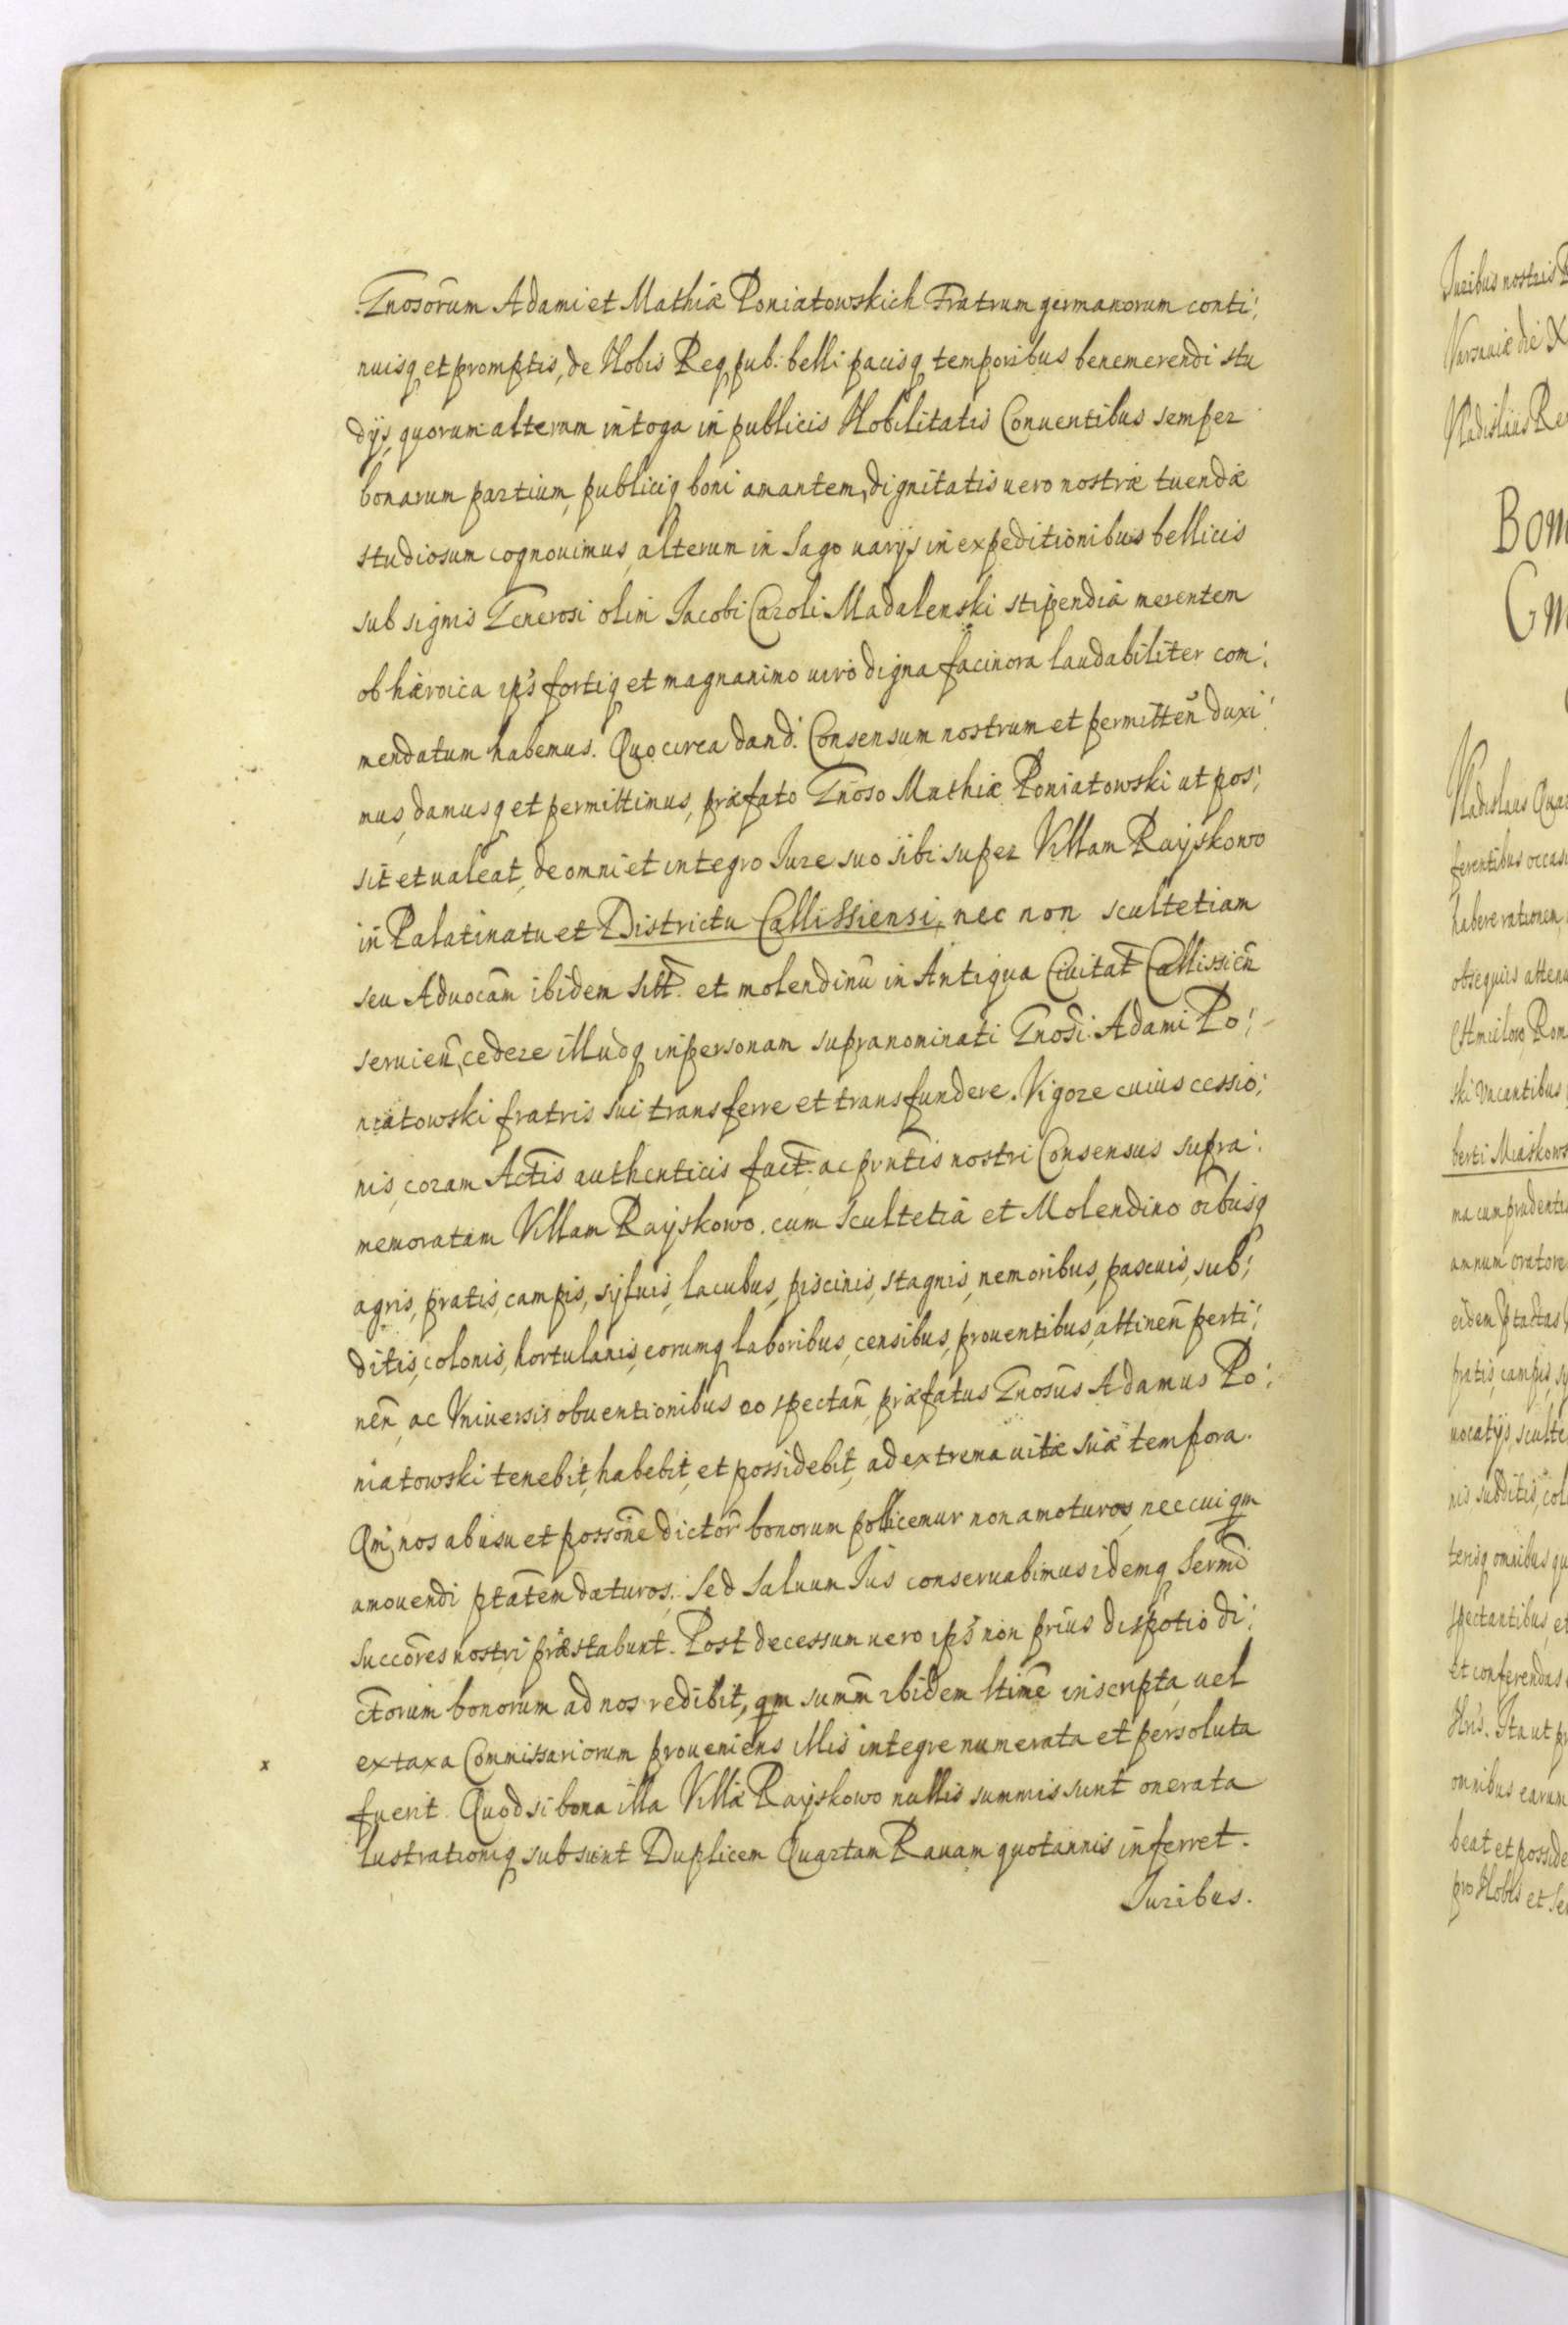 Gnosorum Adami et Mathiæ Poniatowskich Fratrum germanorum conti:
nuisq et promptis, de Nobis Req pub. belli pacisq temporibus benemerendi stu
dijs, quorum alterum in toga in publicis Nobilitatis Conuentibus semper
bonarum partium, publiciq boni amantem, dignitatis uero nostræ tuendæ
studiosum cognouimus, alterum in Sago uarijs in expeditionibus bellicis
sub signis Generosi olim Jacobi Caroli Madalenski stipendia merentem
ob hæroica ips fortiq et magnanimo uiro digna facinora laudabiliter com:
mendatum habemus. Quocirca dand. Consensum nostrum et permitten duxi:
mus, damusq et permittimus, præfato Gnoso Mathiæ Poniatowski ut pos:
sit et ualeat, de omni et integro Jure suo sibi super Villam Rayskowo
in Palatinatu et Districtu Callissiensi, nec non scultetiam
seu Aduocam ibidem sitt. et molendinu in Antiqua Ciuitat Callissien
seruien, cedere illudq in personam supranominati Gnosi Adami Po:
niatowski fratris sui transferre et transfundere. Vigore cuius cessio:
nis, coram Actis authenticis fact. ac pntis nostri Consensus supra:
memoratam Villam Rayskowo cum Scultetia et Molendino oibusq
agris, pratis, campis, syluis, lacubus, piscinis, stagnis, nemoribus, pascuis, sub:
ditis, colonis, hortulanis, eorumq laboribus, censibus, prouentibus, attinen perti:
nen, ac Vniuersis obuentionibus eo spectan, præfatus Gnosus Adamus Po:
niatowski tenebit, habebit, et possidebit, ad extrema uitæ suæ tempora.
Qm nos ab usu et possone dictor bonorum pollicemur non amoturos, nec cui qm
amouendi ptatem daturos. Sed Saluum Jus conseruabimus idemq Sermi
Succores nostri præstabunt. Post decessum uero ips non prius dispotio di:
ctorum bonorum ad nos redibit, qm summ ibidem ltime inscripta, uel
x ex taxa Commissariorum proueniens illis integre numerata et persoluta
fuerit. Quod si bona illa Villæ Rayskowo nullis summis sunt onerata
lustrationiq subsunt Duplicem Quartam Rauam quotannis inferret.
Juribus.
Juribus nostris
Varsauiæ die
Vladislaus Re
Bon
Vladislaus Quar
ferentibus occas
habere rationem
obsequiis atten
ski vacantibus
berti Miaskows
ma cum prudentia
annum oratore
eidem ptactas
pratis, campis, sy
uocatijs, sculte
nis subditis, col
terisq omnibus qu
spectantibus, et
et conferendas
Nris. Ita ut p
omnibus earum
beat et posside
pro Nobis et Se